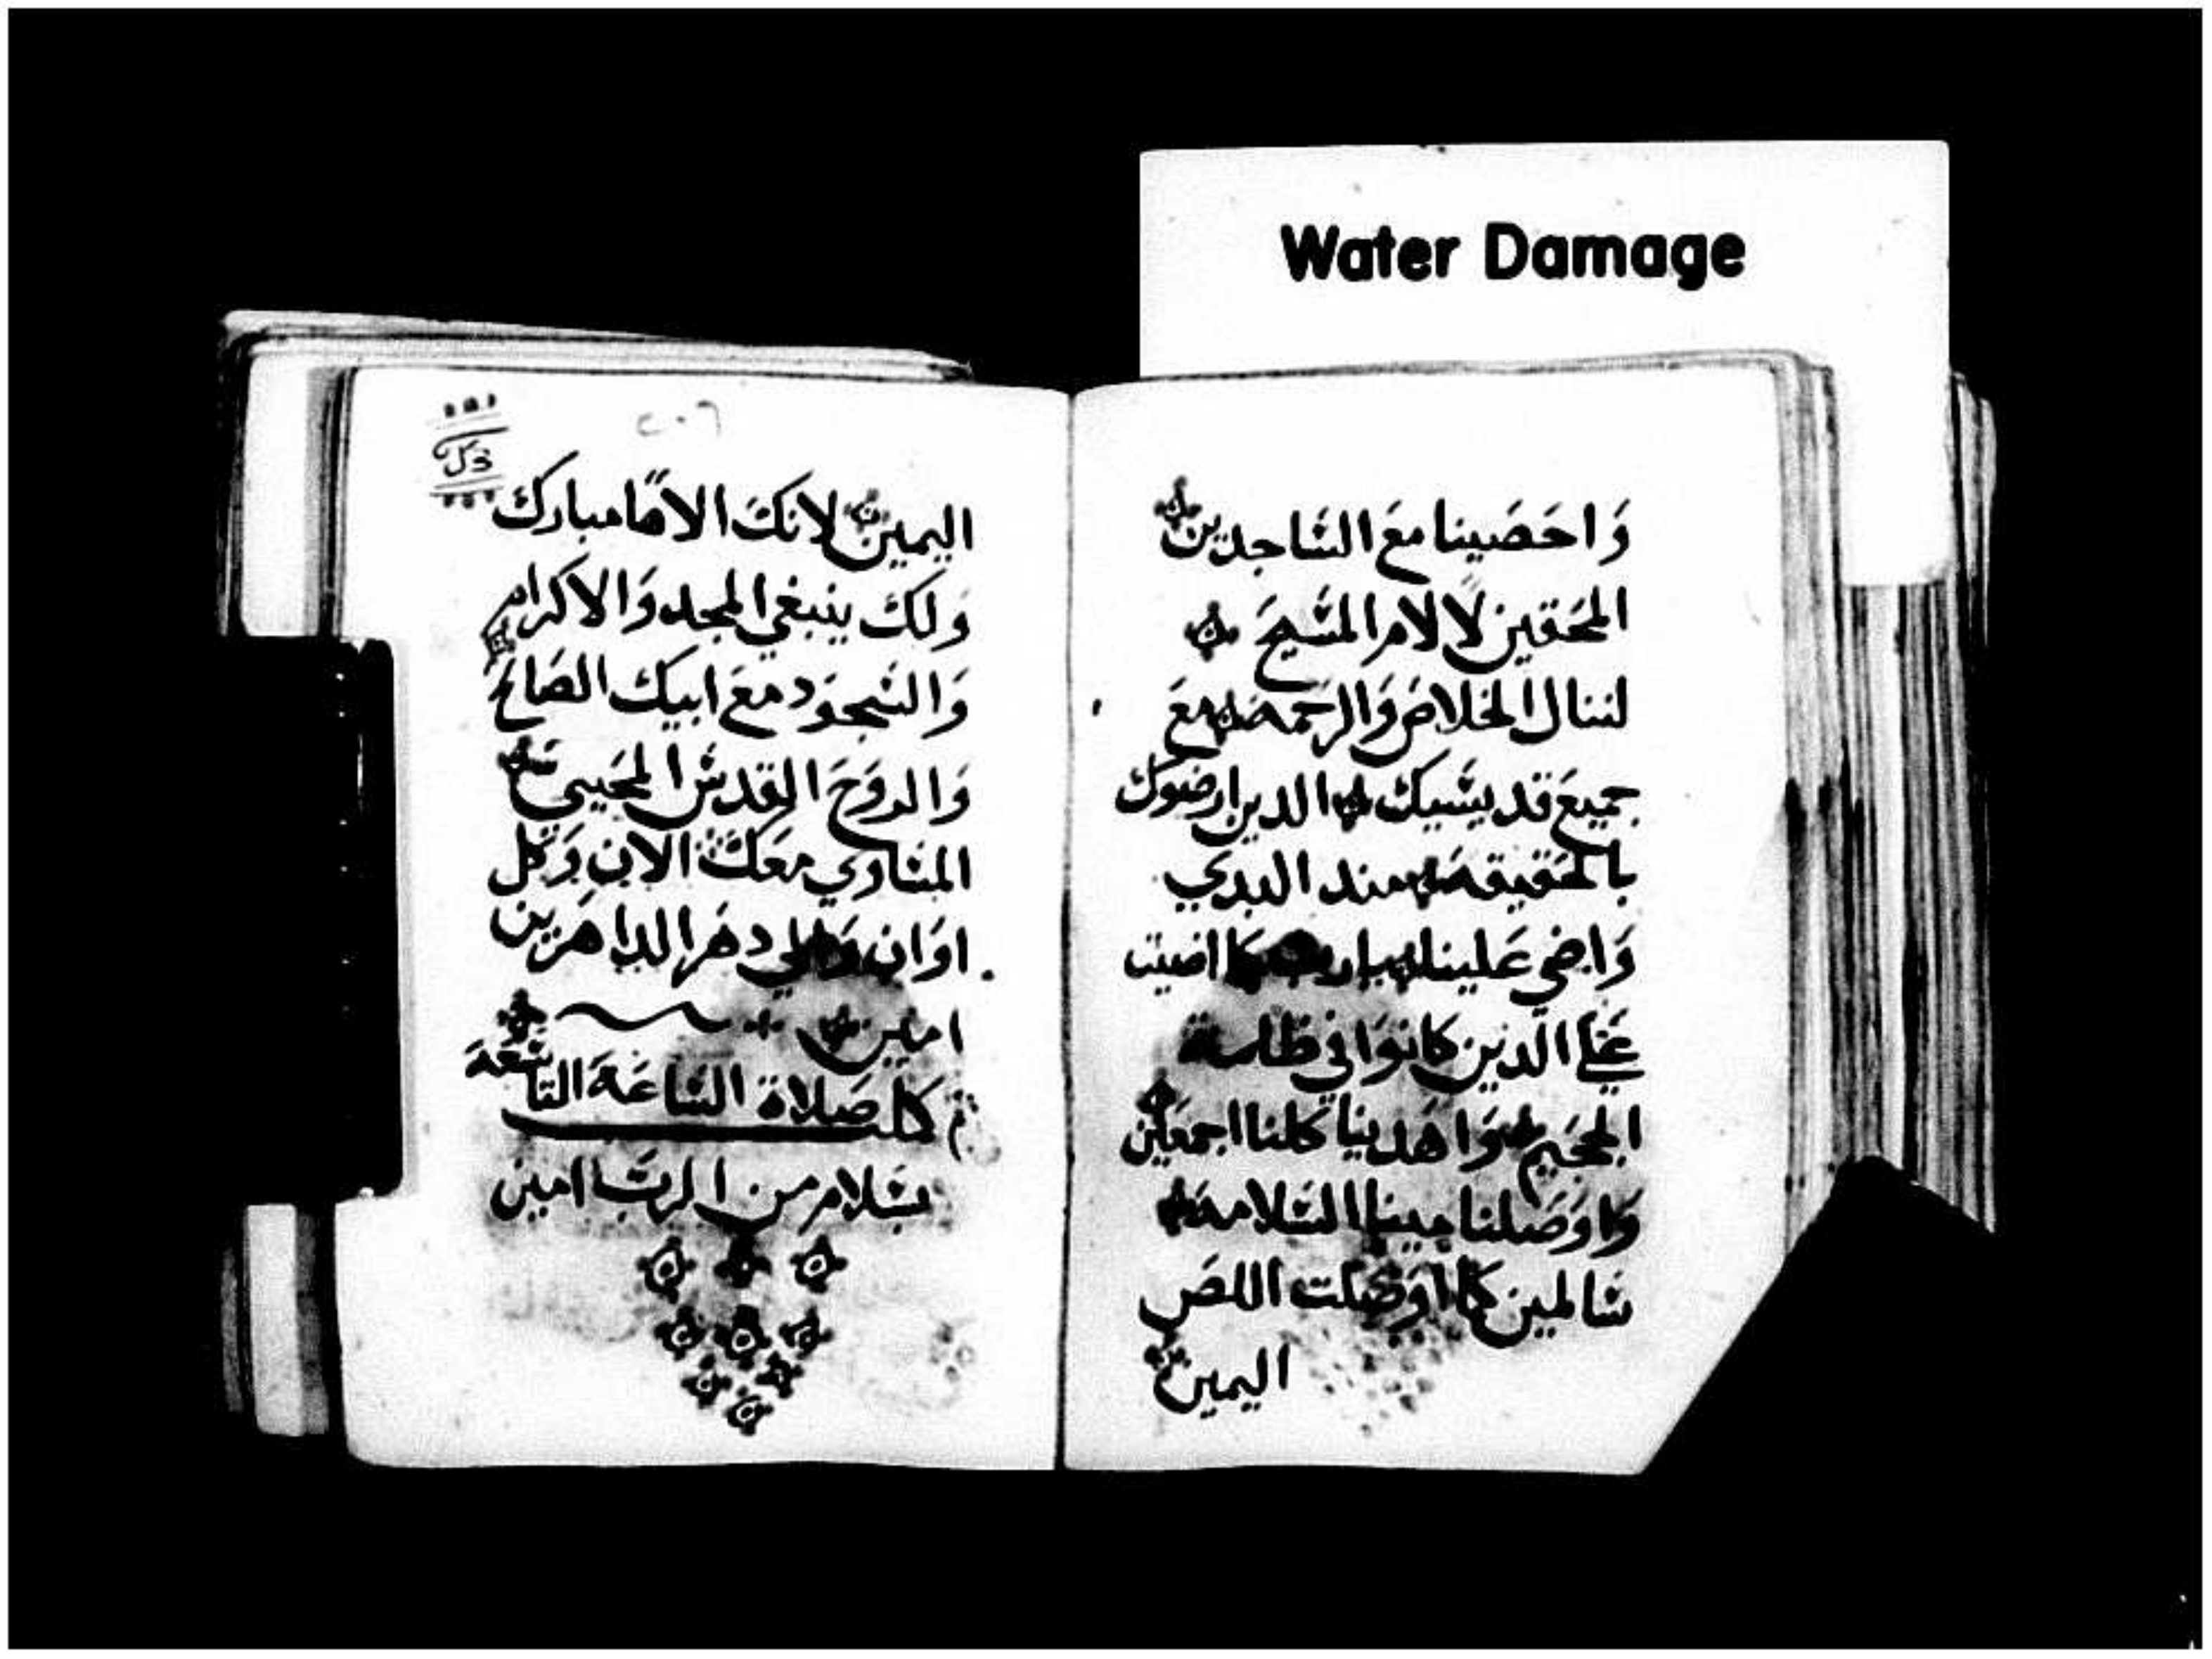 Water Damage
وَاحَصَينا معَ السَاجدين
المحَقين لالام المسَيحَ
لننال الخلاصَ وَالرحمَه معَ
جميعَ قديسَيك الدين ارضوك
بالحَقيقه مند البدي
وَاضي عَلينا يارب كما اضيت
عَلي الدين كانوَا في ظلمة
الجحَيم وَاهدينا كلنا اجمعَين
وَاوَصَلنا مينا السَلامه
سَالمين كما اوَصَلت اللصَ
اليمين
٢٠٦
اليمين لانك الاهًا مبارك
وَلك ينبغي المجد وَالاكرام
وَالسَجوَد معَ ابيك الصَالح
وَالروَحَ القدسَ المحَيي
المسَاوي معَك الان وَكل
اوَان وَالي دهرَ الداهرَين
امين
كملت صَلاة السَاعَة التاسَعَة
بسَلام من الربَ امين